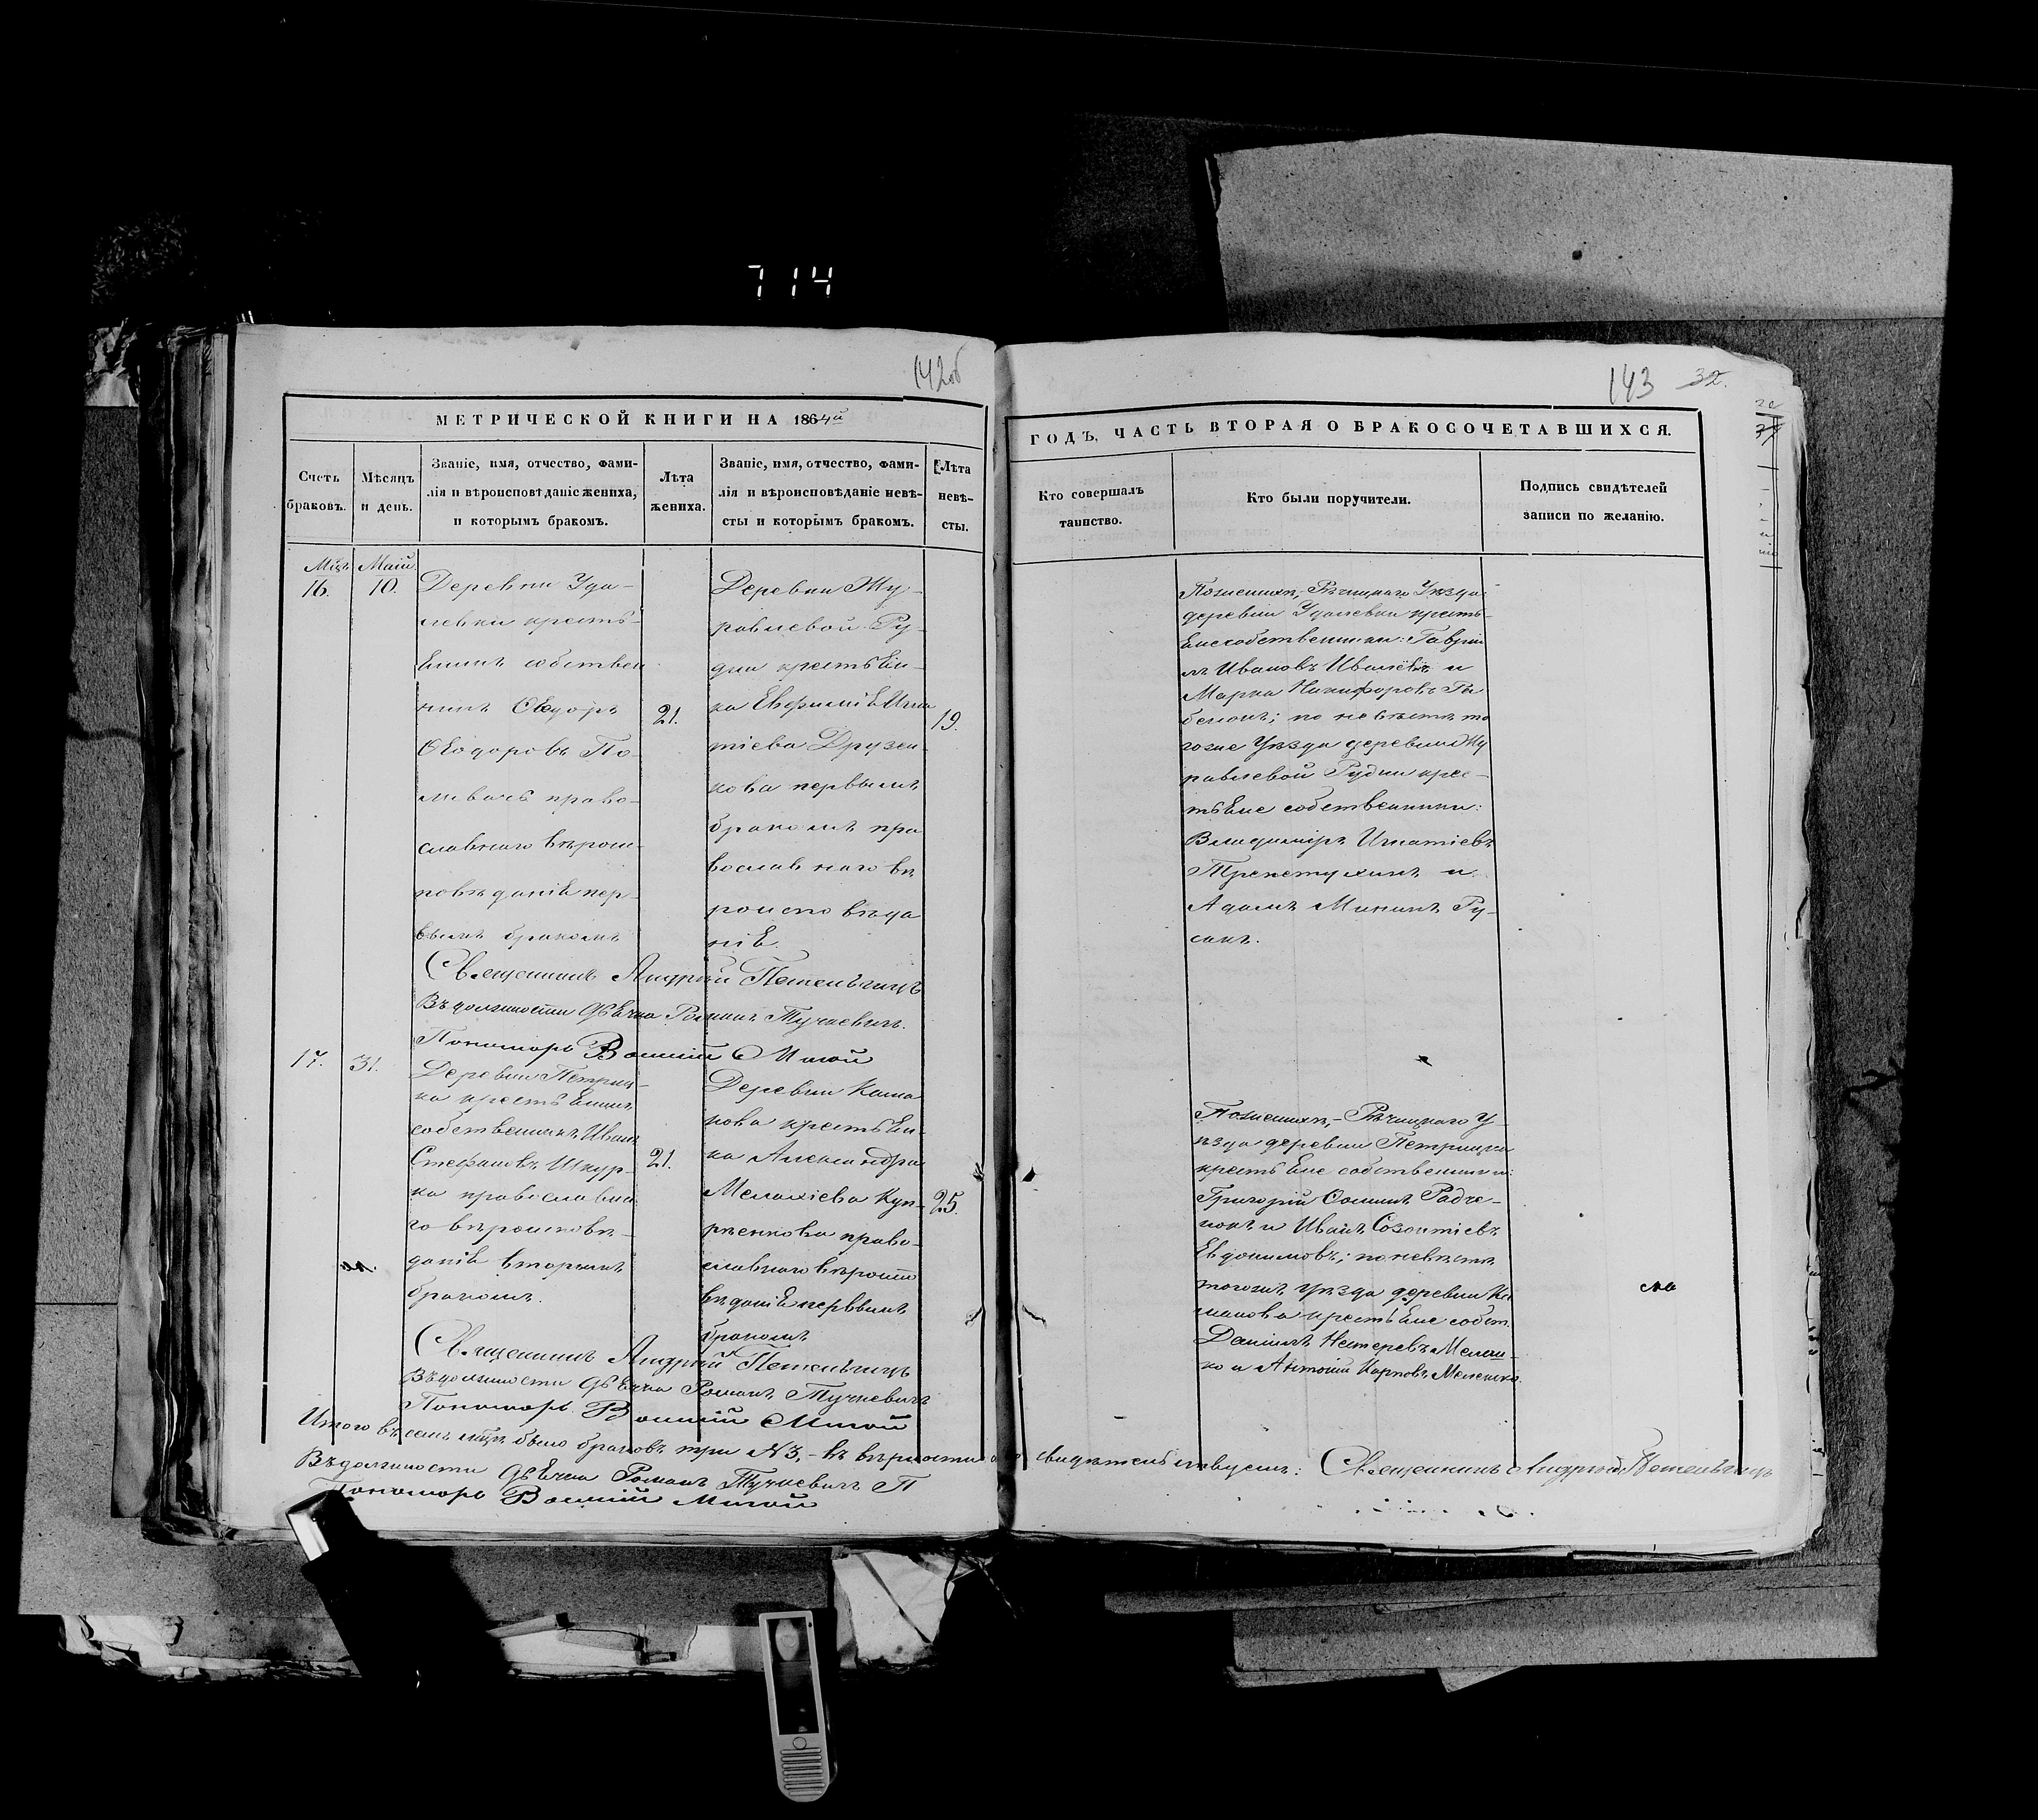 714
142об
МЕТРИЧЕСКОЙ КНИГИ НА 1864й
Счетъ
браковъ.
Мѣсяцъ
и день.
Званіе, имя, отчество, фами-
лія и вѣроисповѣданіе жениха,
и которымъ бракомъ.
Лѣта
жениха.
Званіе, имя, отчество, фами-
лія и вѣроисповѣданіе невѣ-
сты и которымъ бракомъ.
Лѣта
невѣ-
сты.
Маій
16.
10.
Деревни Уда-
левки кресть-
енинъ собствен
никъ Ѳеодоръ
Ѳеодоровъ По-
ливачь право-
славнаго вѣрои-
повѣданіе пер-
вымъ бракомъ
21.
Деревни Му-
равлевой Ру-
дни крестьен-
ка Евфиміе Игна
тіева Друзен-
кова первымъ
бракомъ пра
вославнаго вѣ
роисповѣда
ніе
19.
Священникъ Андрей
Въ должности Дьечка Романъ Тучкевичъ.
Пономарь
17.
31.
Деревни Петриц-
ка крестьенинъ
собственникъ Иванъ
Стефановъ Шкур-
ка православна
го вѣроисповѣ-
даніе вторымъ
бракомъ.
21.
Деревни Каша
нова крестьен-
ка Александра
Малахіева Куп-
рѣенкова право-
славнаго вѣроиспо
вѣданіе первымъ
бракомъ
25.
Священникъ Андрей
Въ должности Дьечка Романъ Тучкевичъ
Пономарь
Итого въ семъ мцѣ было браковъ три №3,- въ вѣрности свидѣтельствуемъ: Священникъ Андрей
Въ должности Дьечка Романъ Тучкевичъ
Пономарь
143 32.
ГОДЪ, ЧАСТЬ ВТОРАЯ О БРАКОСОЧЕТАВШИХСЯ.
Кто совершалъ
таинство.
Кто были поручители.
Подпись свидѣтелей
записи по желанію.
По женихѣ,- Рѣчицкаго Уѣзда
деревни Удалевки кресть-
ене собственники: Гаврі
лъ Ивановъ и
Марка Никифоровъ
по невѣстѣ то
гоже Уѣзда деревни Му
равлевой Рудни крес-
тьене собственники:
Владиміръ Игнатіевъ
и
Адамъ Мининъ Ру-
сакъ.
По женихѣ,- Рѣчицкаго У-
ѣзда деревни Петрицка
крестьене собственники:
Григорій Ѳоминъ Радче-
нокъ и Иванъ Созонтіевъ
Евдокимовъ; по невѣстѣ
тогожъ уѣзда деревни Ка
шанова крестьене собст.
Даніилъ Нестеровъ Мелеш-
ко и Антоній Карповъ Мелешко.